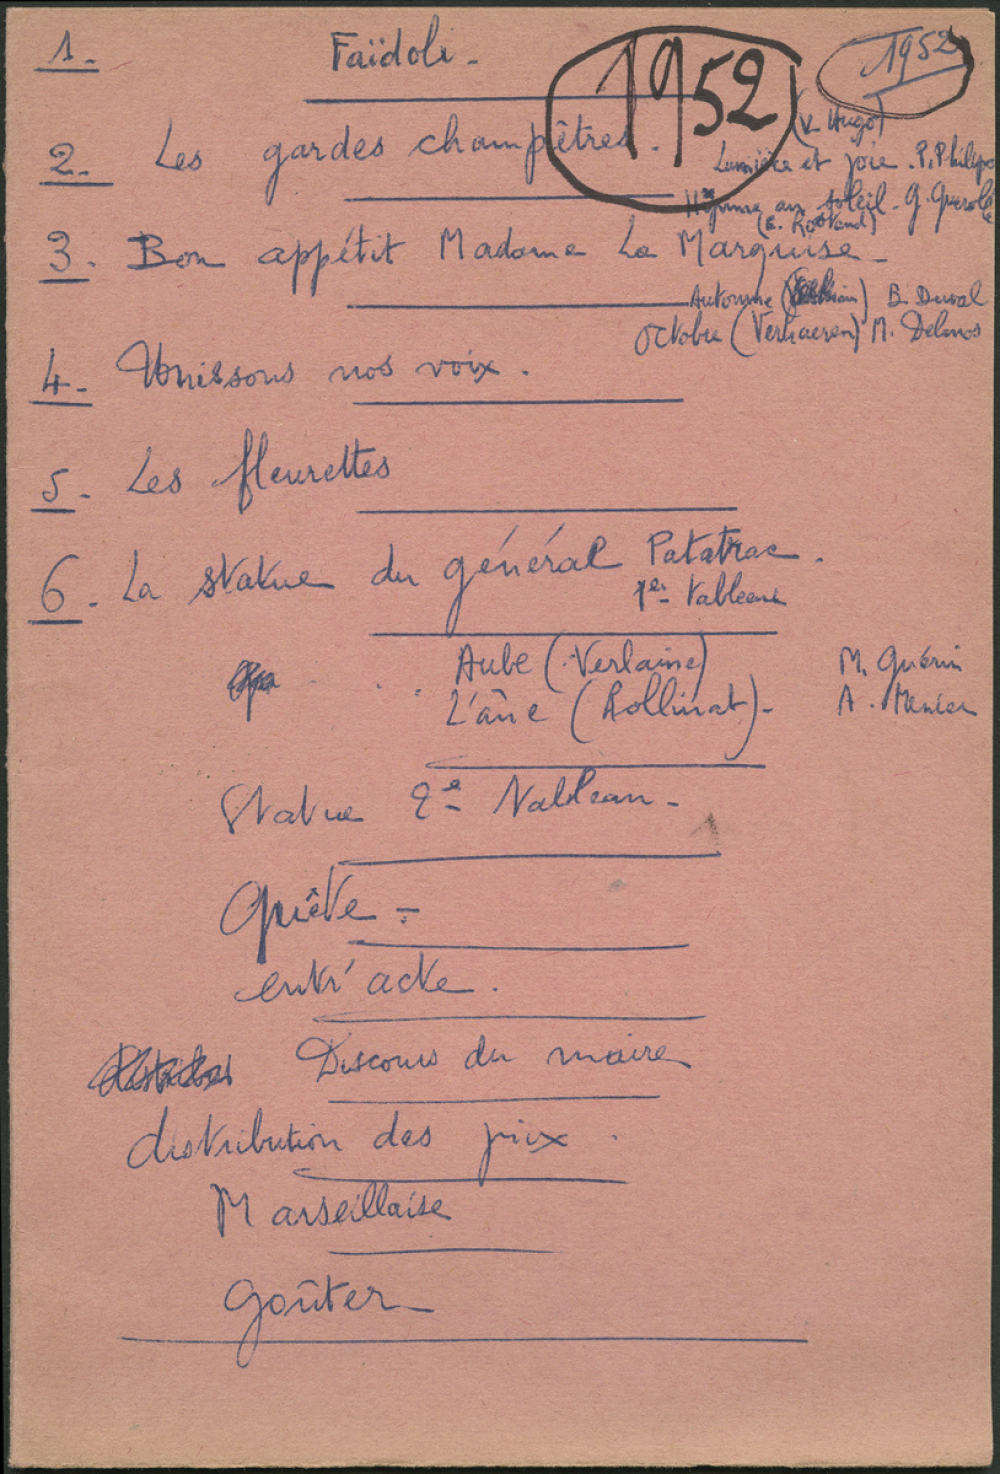 1. Faïdoli.
1952
1952
2. Les gardes champêtres.
(V. Hugo)
Lumière et joie. P. Philippe
Hymne au soleil. G.
(E. Rostand)
3. Bon appétit Madame La Marquise
Automne B. Duval
Octobre (Verhaeren) M. Delmos
4. Unissons nos voix.
5. Les fleurettes
6. La statue du général Patatrac.
1er tableau
Aube (Verlaine) M. Guérin
L'âne (Rollinat) A. Menier
Statue 2e Tableau
Quête
entr'acte.
Discours du maire
distribution des prix.
Marseillaise
Goûter